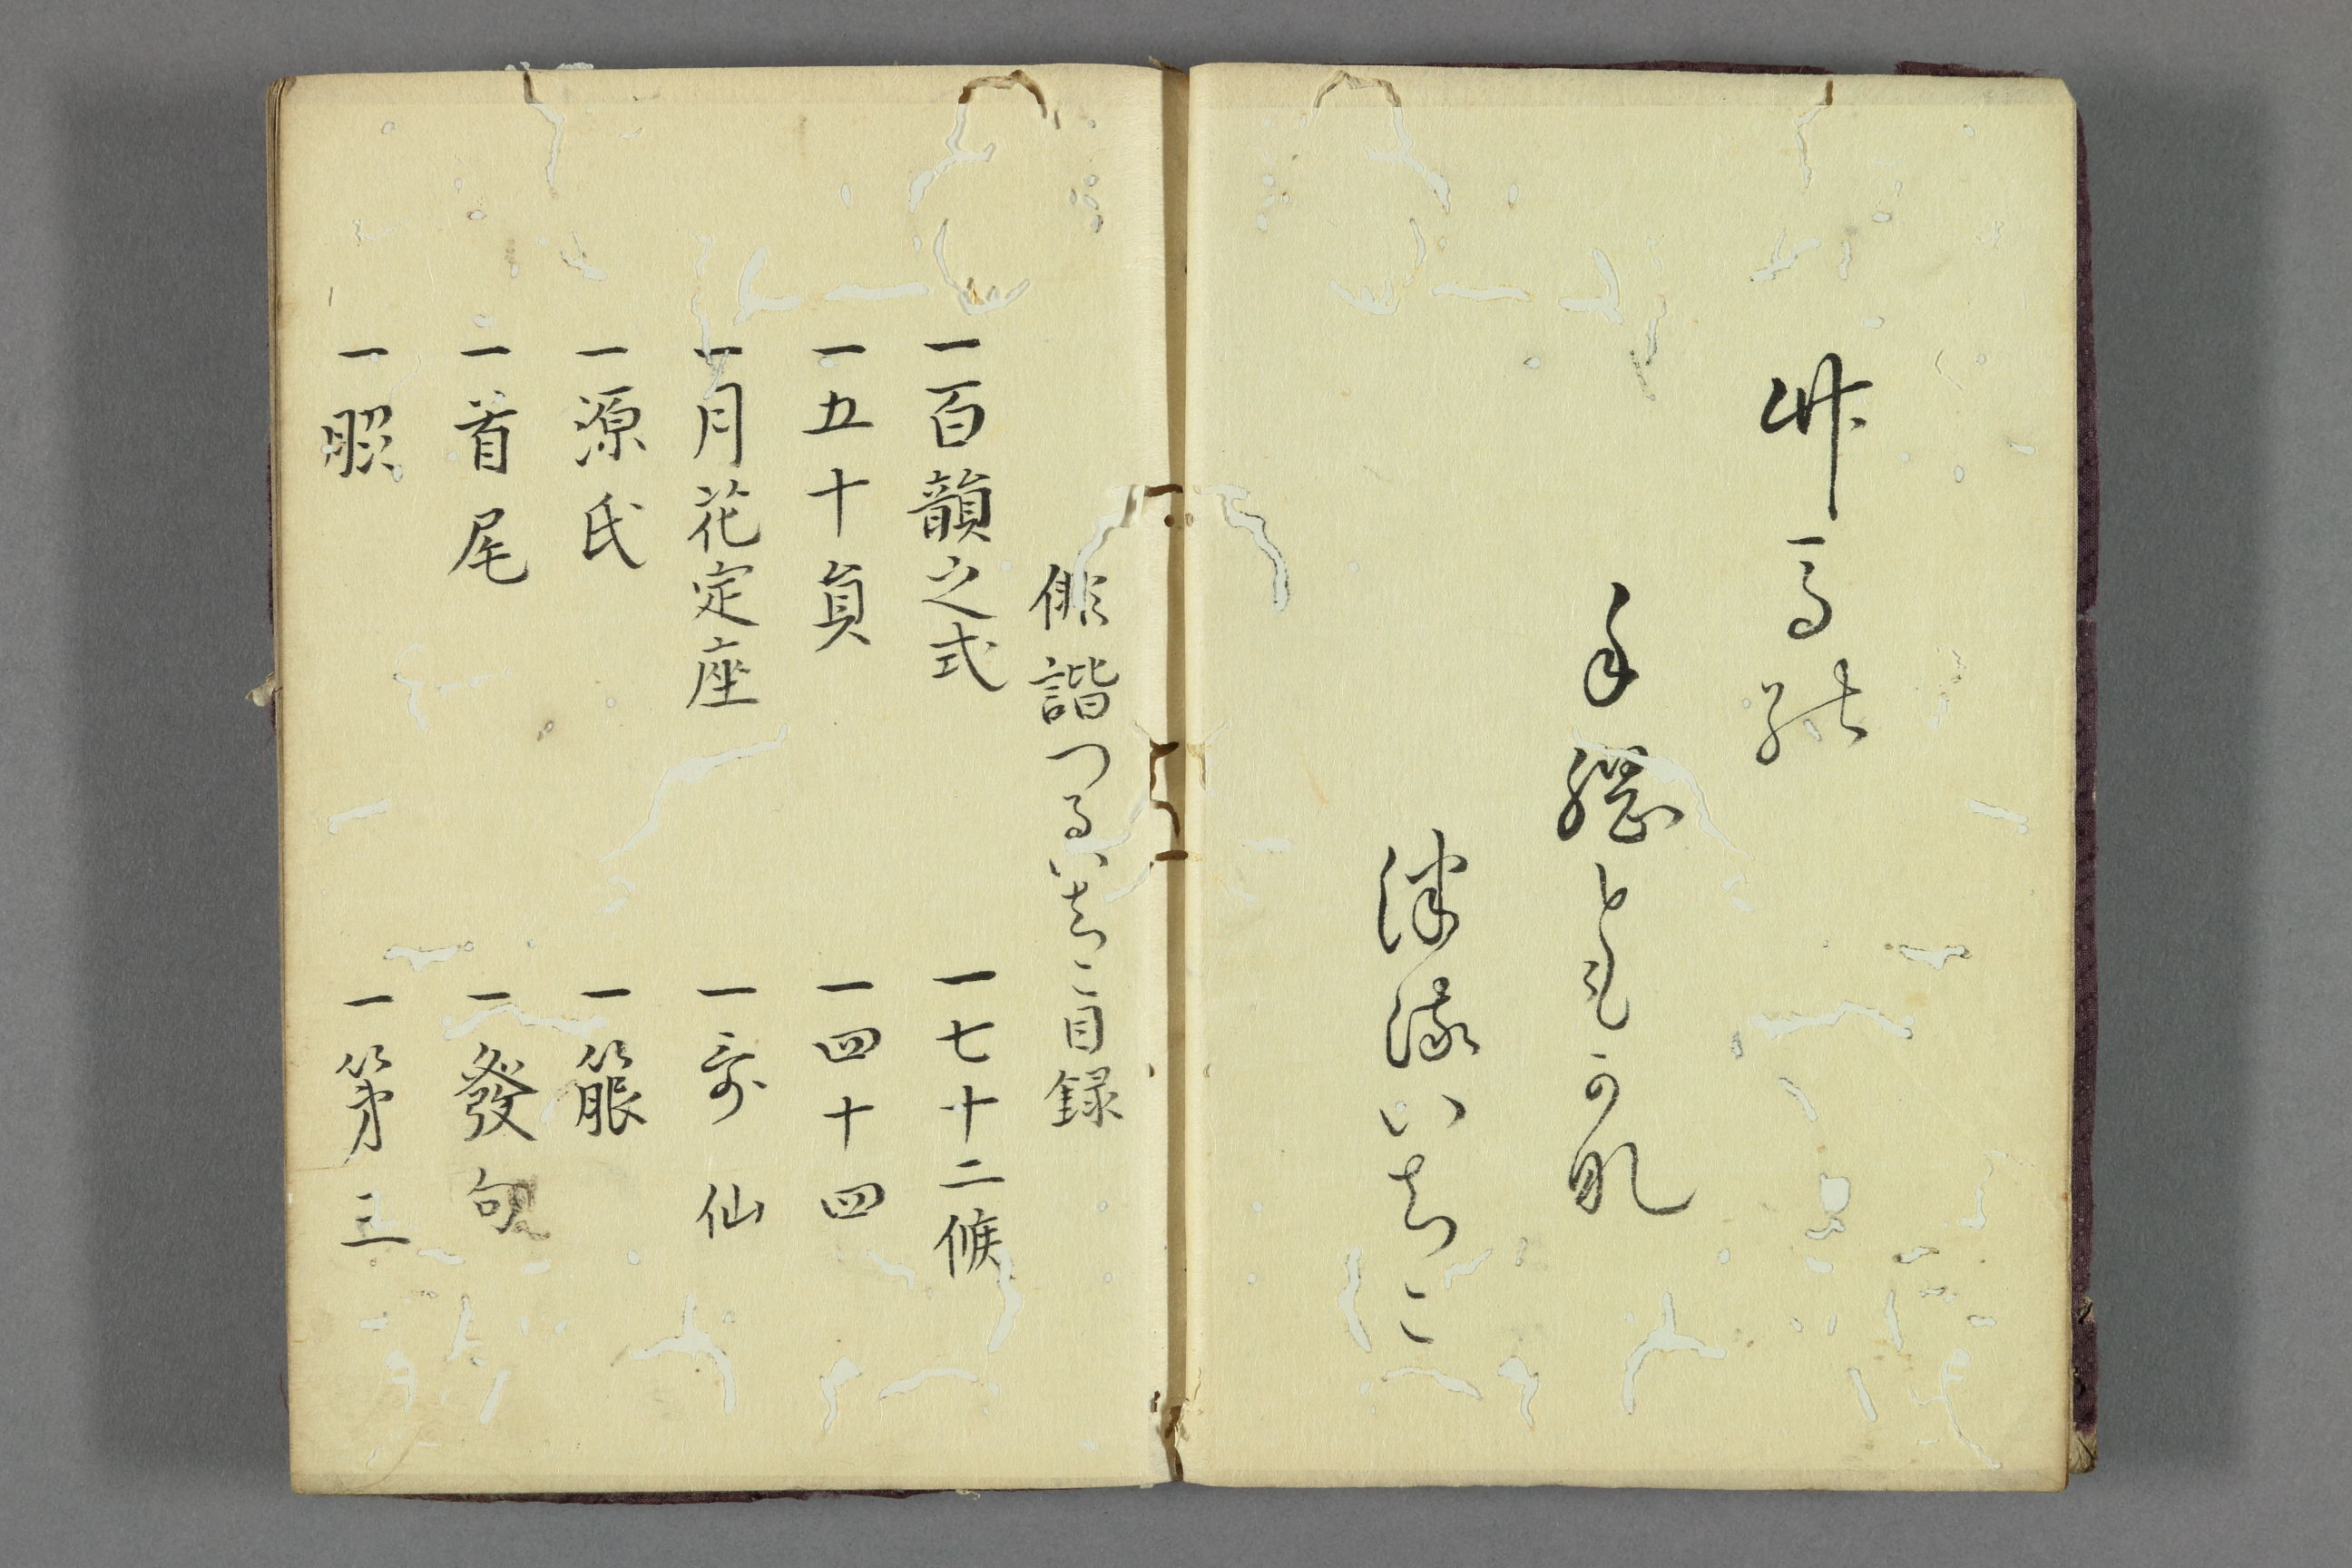 竹馬能
手綱とも可那
津流いちこ
俳諧つるいちこ目録
一百韻之式　一七十二候
一五十員　一四十四
一月花定座　一哥仙
一源氏　一箙
一首尾　一發句
一脇　一第三